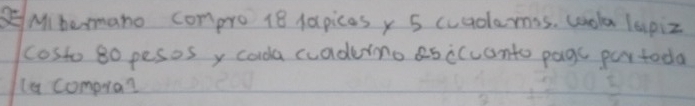 Mi hermano compro 18 lapices y 5 cuadernos. cada lapiz
costo 80 pesos y cada cuaderno 25 ¿cuanto pago por toda
la compra?